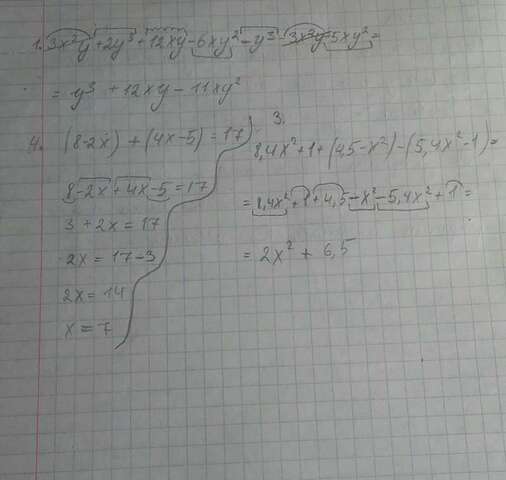 1. 3x²y + 2y³ + 12xy - 6xy² - y³ - 3x²y - 5xy² =
= y³ + 12xy - 11xy²
4. (8-2x) + (4x-5) = 17
8 - 2x + 4x - 5 = 17
3 + 2x = 17
2x = 17 - 3
2x = 14
x = 7
3.
8,4x² + 1 + (4,5 - x²) - (5,4x² - 1) =
= 8,4x² + 1 + 4,5 - x² - 5,4x² + 1 =
= 2x² + 6,5